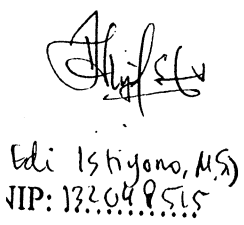 Edi Istiyono, M.Si)
NIP: 132049515